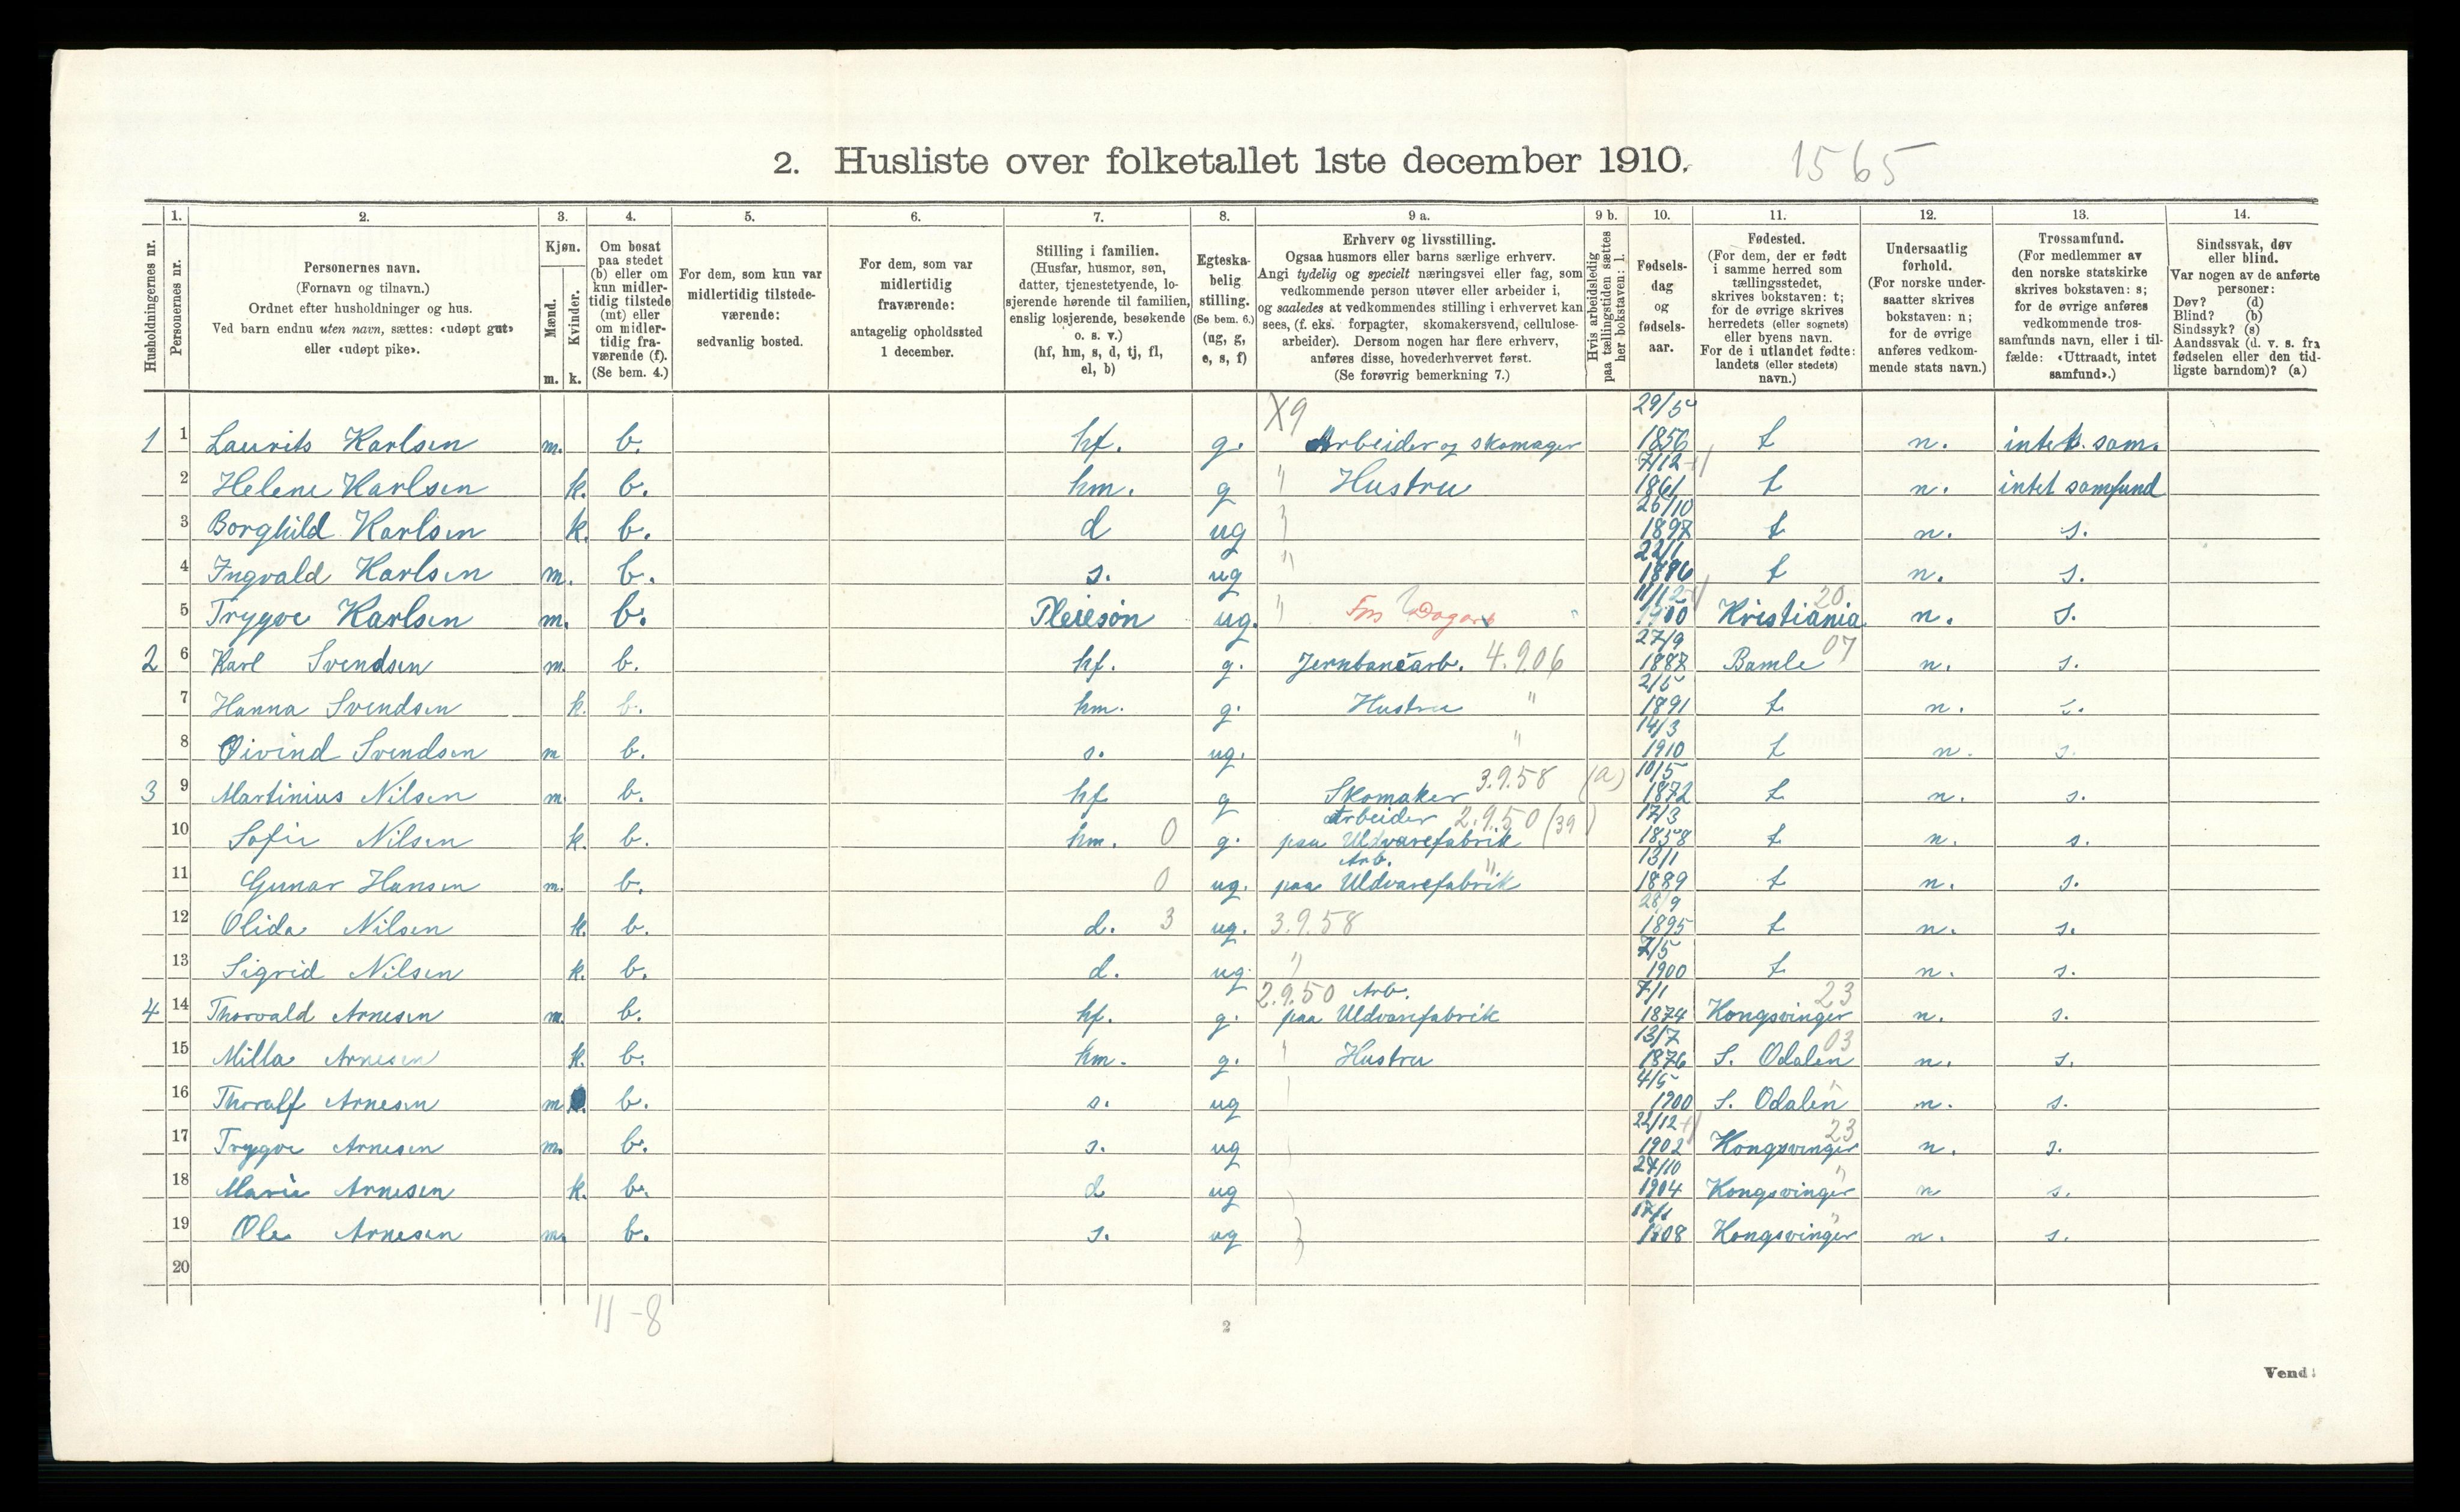 2. Husliste over folketallet 1ste december 1910. 1565
Husholdningernes nr.
1. 2. 3. 4. 5. 6. 7. 8. 9 a. 9 b. 10. 11. 12. 13. 14.
Personernes nr.
Personernes navn.
(Fornavn og tilnavn.)
Ordnet efter husholdninger og hus.
Ved barn endnu uten navn, sættes: «udøpt gut»
eller «udøpt pike».
Kjøn.
Mænd.
Kvinder.
m. k.
Om bosat
paa stedet
(b) eller om
kun midler-
tidig tilstede
(mt) eller
om midler-
tidig fra-
værende (f).
(Se bem. 4.)
For dem, som kun var
midlertidig tilstede-
værende:
sedvanlig bosted.
For dem, som var
midlertidig
fraværende:
antagelig opholdssted
1 december.
Stilling i familien.
(Husfar, husmor, søn,
datter, tjenestetyende, lo-
sjerende hørende til familien,
enslig losjerende, besøkende
o. s. v.)
(hf, hm, s, d, tj, fl,
el, b)
Egteska-
belig
stilling.
(Se bem. 6.)
(ug, g,
e, s, f)
Erhverv og livsstilling.
Ogsaa husmors eller barns særlige erhverv.
Angi tydelig og specielt næringsvei eller fag, som
vedkommende person utøver eller arbeider i,
og saaledes at vedkommendes stilling i erhvervet kan
sees, (f. eks. forpagter, skomakersvend, cellulose-
arbeider). Dersom nogen har flere erhverv,
anføres disse, hovederhvervet først.
(Se forøvrig bemerkning 7.)
Hvis arbeidsledig
paa tællingstiden sættes
her bokstaven: l.
Fødsels-
dag
og
fødsels-
aar.
Fødested.
(For dem, der er født
i samme herred som
tællingsstedet,
skrives bokstaven: t;
for de øvrige skrives
herredets (eller sognets)
eller byens navn.
For de i utlandet fødte:
landets (eller stedets)
navn.)
Undersaatlig
forhold.
(For norske under-
saatter skrives
bokstaven: n;
for de øvrige
anføres vedkom-
mende stats navn.)
Trossamfund.
(For medlemmer av
den norske statskirke
skrives bokstaven: s;
for de øvrige anføres
vedkommende tros-
samfunds navn, eller i til-
fælde: «Uttraadt, intet
samfund».)
Sindssvak, døv
eller blind.
Var nogen av de anførte
personer:
Døv? (d)
Blind? (b)
Sindssyk? (s)
Aandssvak (d. v. s. fra
fødselen eller den tid-
ligste barndom)? (a)
1 1 Laurits Karlsen m. b. hf. g. X9 Arbeider og skomager 29/5 1856 t n. intet sam.
2 Helene Karlsen k. b. hm. g " Hustru 7/12 1861 t n. intet samfund
3 Borghild Karlsen k. b. d ug " 26/10 1897 t n. s.
4 Ingvald Karlsen m. b. s. ug " 22/1 1896 t n. s.
5 Trygve Karlsen m. b. Pleiesøn ug. " 11/12 1900 Kristiania 20 n. s.
2 6 Karl Svendsen m. b. hf. g. Jernbanearb. 4.9.06 27/9 1887 Bamle 07 n. s.
7 Hanna Svendsen k. b. hm. g. Hustru " 2/5 1891 t. n. s.
8 Øivind Svendsen m b. s. ug. " 14/3 1910 t n. s.
3 9 Martinius Nilsen m. b. hf g Skomaker 3.9.58 (a) 10/5 1872 t n. s.
10 Sofie Nilsen k. b. hm. 0 g. Arbeider paa Uldvarefabrik 2.9.50 (39) 17/3 1858 t n. s.
11 Gunar Hansen m. b. 0 ug. Arb. paa Uldvarefabrik " 13/1 1889 t n. s.
12 Olida Nilsen k. b. d. 3 ug. 3.9.58 28/9 1895 t n. s.
13 Sigrid Nilsen k. b. d. ug. " 7/5 1900 t n. s.
4 14 Thorvald Arnesen m. b. hf. g. 2.9.50 Arb. paa Uldvarefabrik 7/1 1874 Kongsvinger 23 n. s.
15 Milla Arnesen k. b. hm. g. " Hustru 13/7 1876 S. Odalen 03 n. s.
16 Thoralf Arnesen m b. s. ug 4/5 1900 S. Odalen " n. s.
17 Trygve Arnesen m. b. s. ug 22/12 1902 Kongsvinger 23 n. s.
18 Marie Arnesen k. b. d ug 24/10 1904 Kongsvinger " n s.
19 Ole Arnesen m. b. s. ug 17/1 1908 Kongsvinger " n. s.
20
11-8
2
Vend!